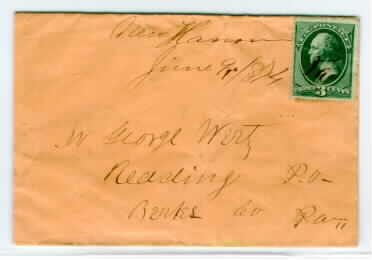 New Hanover
June 9, 1874
U.S. POSTAGE
3 CENTS
Mr George Wertz
Reading P.O-
Berks Co Pa